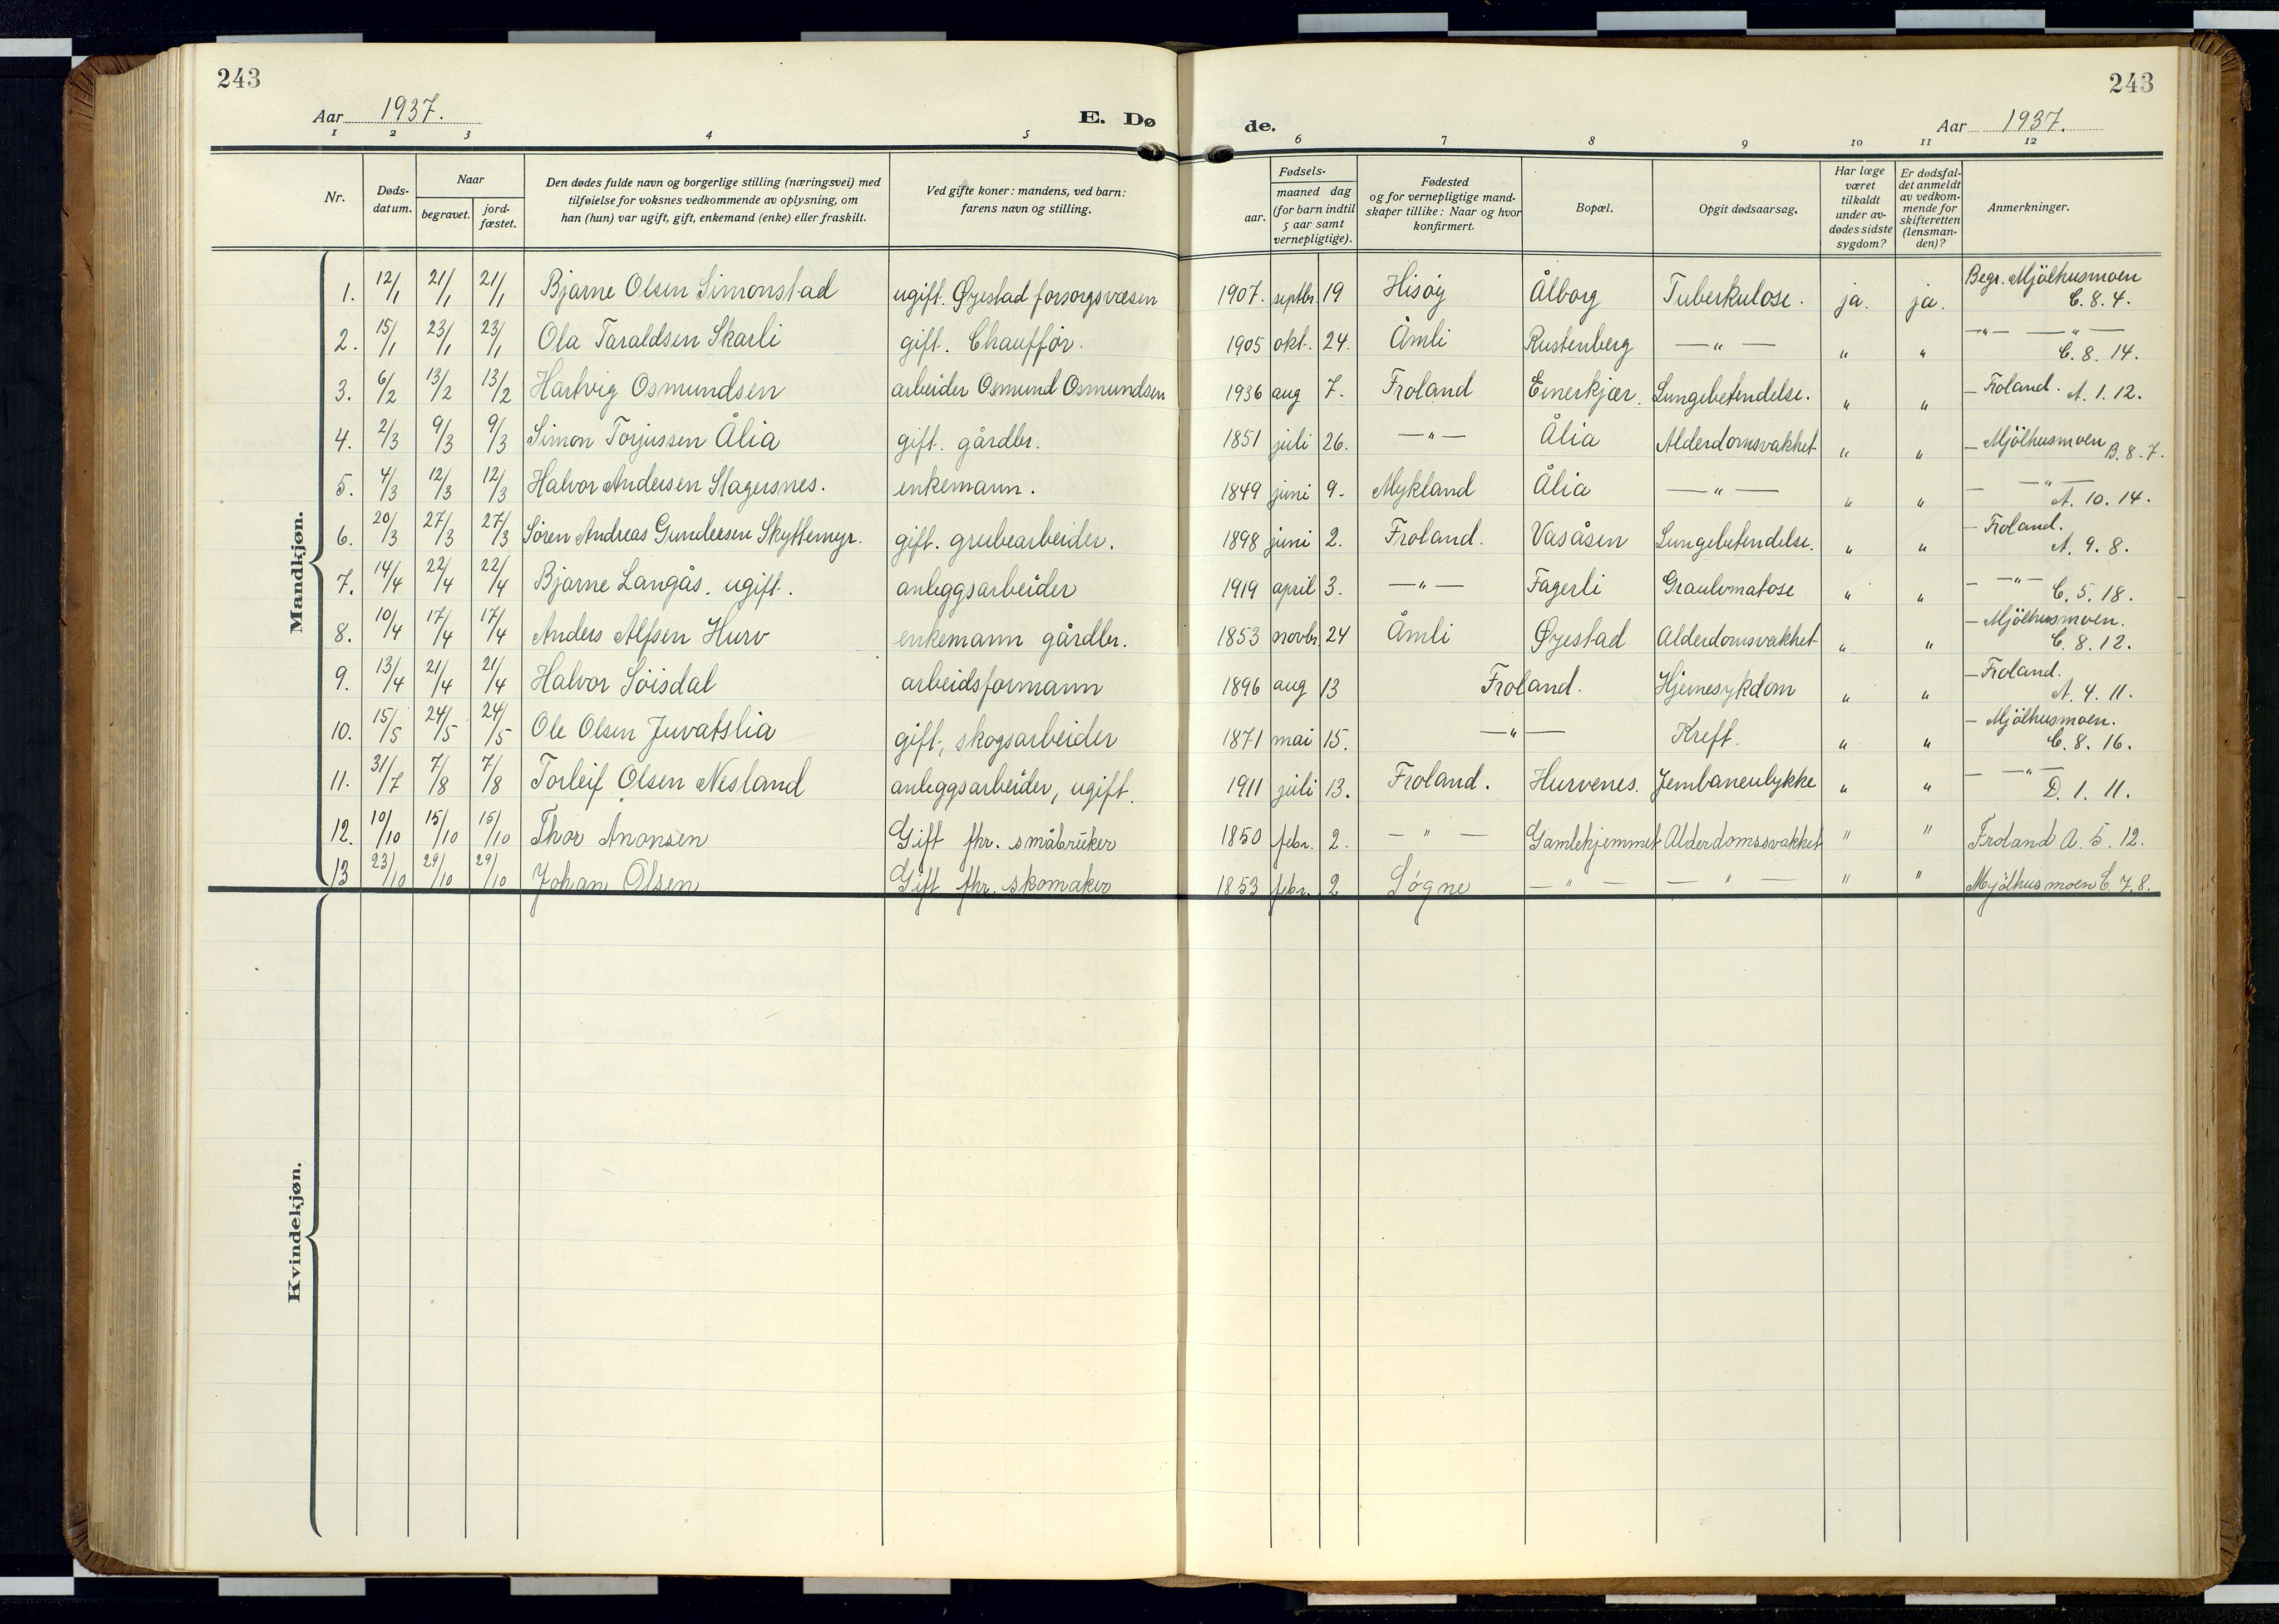 243
243
Aar 1937.
E. Dø
de.
Aar 1937.
1 2 3 4 5 6 7 8 9 10 11 12
Nr.
Døds-
datum.
Naar
begravet.
jord-
fæstet.
Den dødes fulde navn og borgerlige stilling (næringsvei) med
tilføielse for voksnes vedkommende av oplysning, om
han (hun) var ugift, gift, enkemand (enke) eller fraskilt.
Ved gifte koner: mandens, ved barn:
farens navn og stilling.
Fødsels-
aar.
maaned dag
(for barn indtil
5 aar samt
vernepligtige).
Fødested
og for vernepligtige mand-
skaper tillike: Naar og hvor
konfirmert.
Bopæl.
Opgit dødsaarsag.
Har læge
været
tilkaldt
under av-
dødes sidste
sygdom?
Er dødsfal-
det anmeldt
av vedkom-
mende for
skifteretten
(lensman-
den)?
Anmerkninger.
Mandkjøn.
1. 12/1 21/1 21/1 Bjarne Olsen Simonstad ugift. Øyestad forsorgsvæsen 1907. septbr. 19 Hisøy Ålborg Tuberkulose. ja. ja. Begr. Mjölhusmoen C. 8. 4.
2. 15/1 23/1 23/1 Ola Taraldsen Skarli gift. Chaufför. 1905 okt. 24. Åmli Rustenberg —"— " " —"— —"— C. 8. 14.
3. 6/2 13/2 13/2 Hartvig Osmundsen arbeider Osmund Osmundsen 1936 aug 7. Froland Einerkjær. Lungebetendelse. " " — Froland. A. 1. 12.
4. 2/3 9/3 9/3 Simon Torjussen Ålia gift. gårdbr. 1851 juli 26. —"— Ålia Alderdomsvakhet " " — Mjölhusmoen B. 8. 7.
5. 4/3 12/3 12/3 Halvor Andersen Slagersnes. enkemann. 1849 juni 9. Mykland Ålia —"— " " — —"— A. 10. 14.
6. 20/3 27/3 27/3 Sören Andreas Gundersen Skyttemyr. gift. grubearbeider. 1898 juni 2. Froland. Vasåsen Lungebetendelse. " " — Froland. A. 9. 8.
7. 14/4 22/4 22/4 Bjarne Langås. ugift. anleggsarbeider 1919 april 3. —"— Fagerli Graulomatose " " — —"— C. 5. 18.
8. 10/4 17/4 17/4 Anders Alfsen Hurv enkemann gårdbr. 1853 novbr. 24 Åmli Øyestad Alderdomsvakhet " " — Mjölhusmoen. C. 8. 12.
9. 13/4 21/4 21/4 Halvor Söisdal arbeidsformann 1896 aug 13 Froland. Hjernesykdom " " — Froland. A. 4. 11.
10. 15/5 24/5 24/5 Ole Olsen Juvatslia gift, skogsarbeider 1871 mai 15. —"— Kreft. " " — Mjölhusmoen. C. 8. 16.
11. 31/7 7/8 7/8 Torleif Olsen Nesland anleggsarbeider, ugift. 1911 juli 13. Froland. Hurvenes. Jernbaneulykke " " — —"— D. 1. 11.
12. 10/10 15/10 15/10 Thor Anonsen Gift fhr. småbruker 1850 febr. 2. —"— Gamlehjemmet Alderdomssvakhet " " Froland A. 5. 12.
13 23/10 29/10 29/10 Johan Olsen Gift fhr. skomaker 1853 febr. 2 Søgne —"— —"— " " Mjölhusmoen C. 7. 8.
Kvindekjøn.